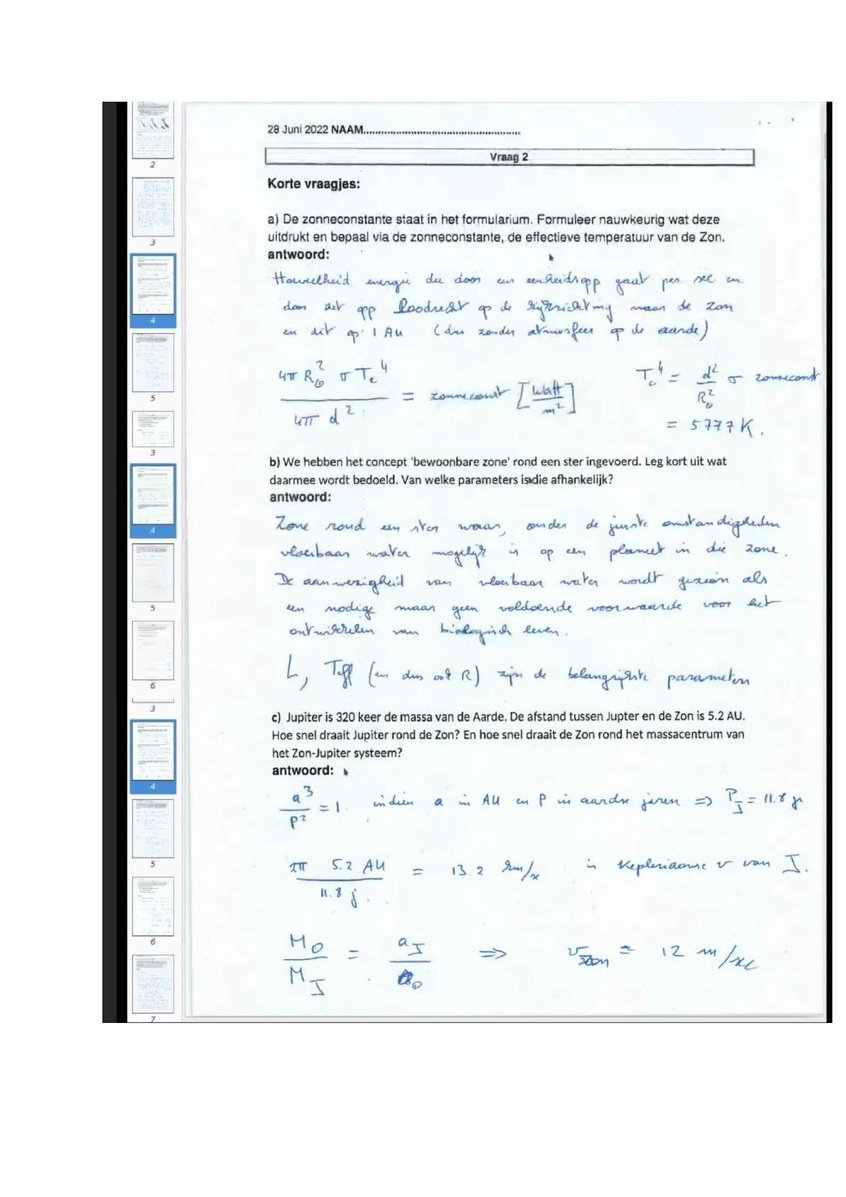 28 Juni 2022 NAAM......................................................
Vraag 2
Korte vraagjes:
a) De zonneconstante staat in het formularium. Formuleer nauwkeurig wat deze
uitdrukt en bepaal via de zonneconstante, de effectieve temperatuur van de Zon.
antwoord:
Hoeveelheid energie die door een eenheidsopp gaat per sec en
dan dit opp loodrecht op de kijkrichting naar de zon
en dit op 1 AU (dus zonder atmosfeer op de aarde)
4π R⊙² σ Te⁴ / 4π d² = zonneconst [Watt/m²]
Te⁴ = d²/R⊙² σ zonneconst
= 5777 K.
b) We hebben het concept 'bewoonbare zone' rond een ster ingevoerd. Leg kort uit wat
daarmee wordt bedoeld. Van welke parameters is die afhankelijk?
antwoord:
Zone rond een ster waar, onder de juiste omstandigheden
vloeibaar water mogelijk is op een planeet in die zone.
De aanwezigheid van vloeibaar water wordt gezien als
een nodige maar geen voldoende voorwaarde voor het
ontwikkelen van biologisch leven.
L, Teff (en dus ook R) zijn de belangrijkste parameters
c) Jupiter is 320 keer de massa van de Aarde. De afstand tussen Jupter en de Zon is 5.2 AU.
Hoe snel draait Jupiter rond de Zon? En hoe snel draait de Zon rond het massacentrum van
het Zon-Jupiter systeem?
antwoord:
a³/P² = 1 indien a in AU en P in aardse jaren ⇒ P_J = 11.8 jr
2π 5.2 AU / 11.8 j. = 13.2 km/s is Kepleriaanse v van J.
M⊙/M_J = a_J/a⊙ ⇒ v_zon ≈ 12 m/sec
2
3
4
5
3
4
5
6
3
4
5
6
7